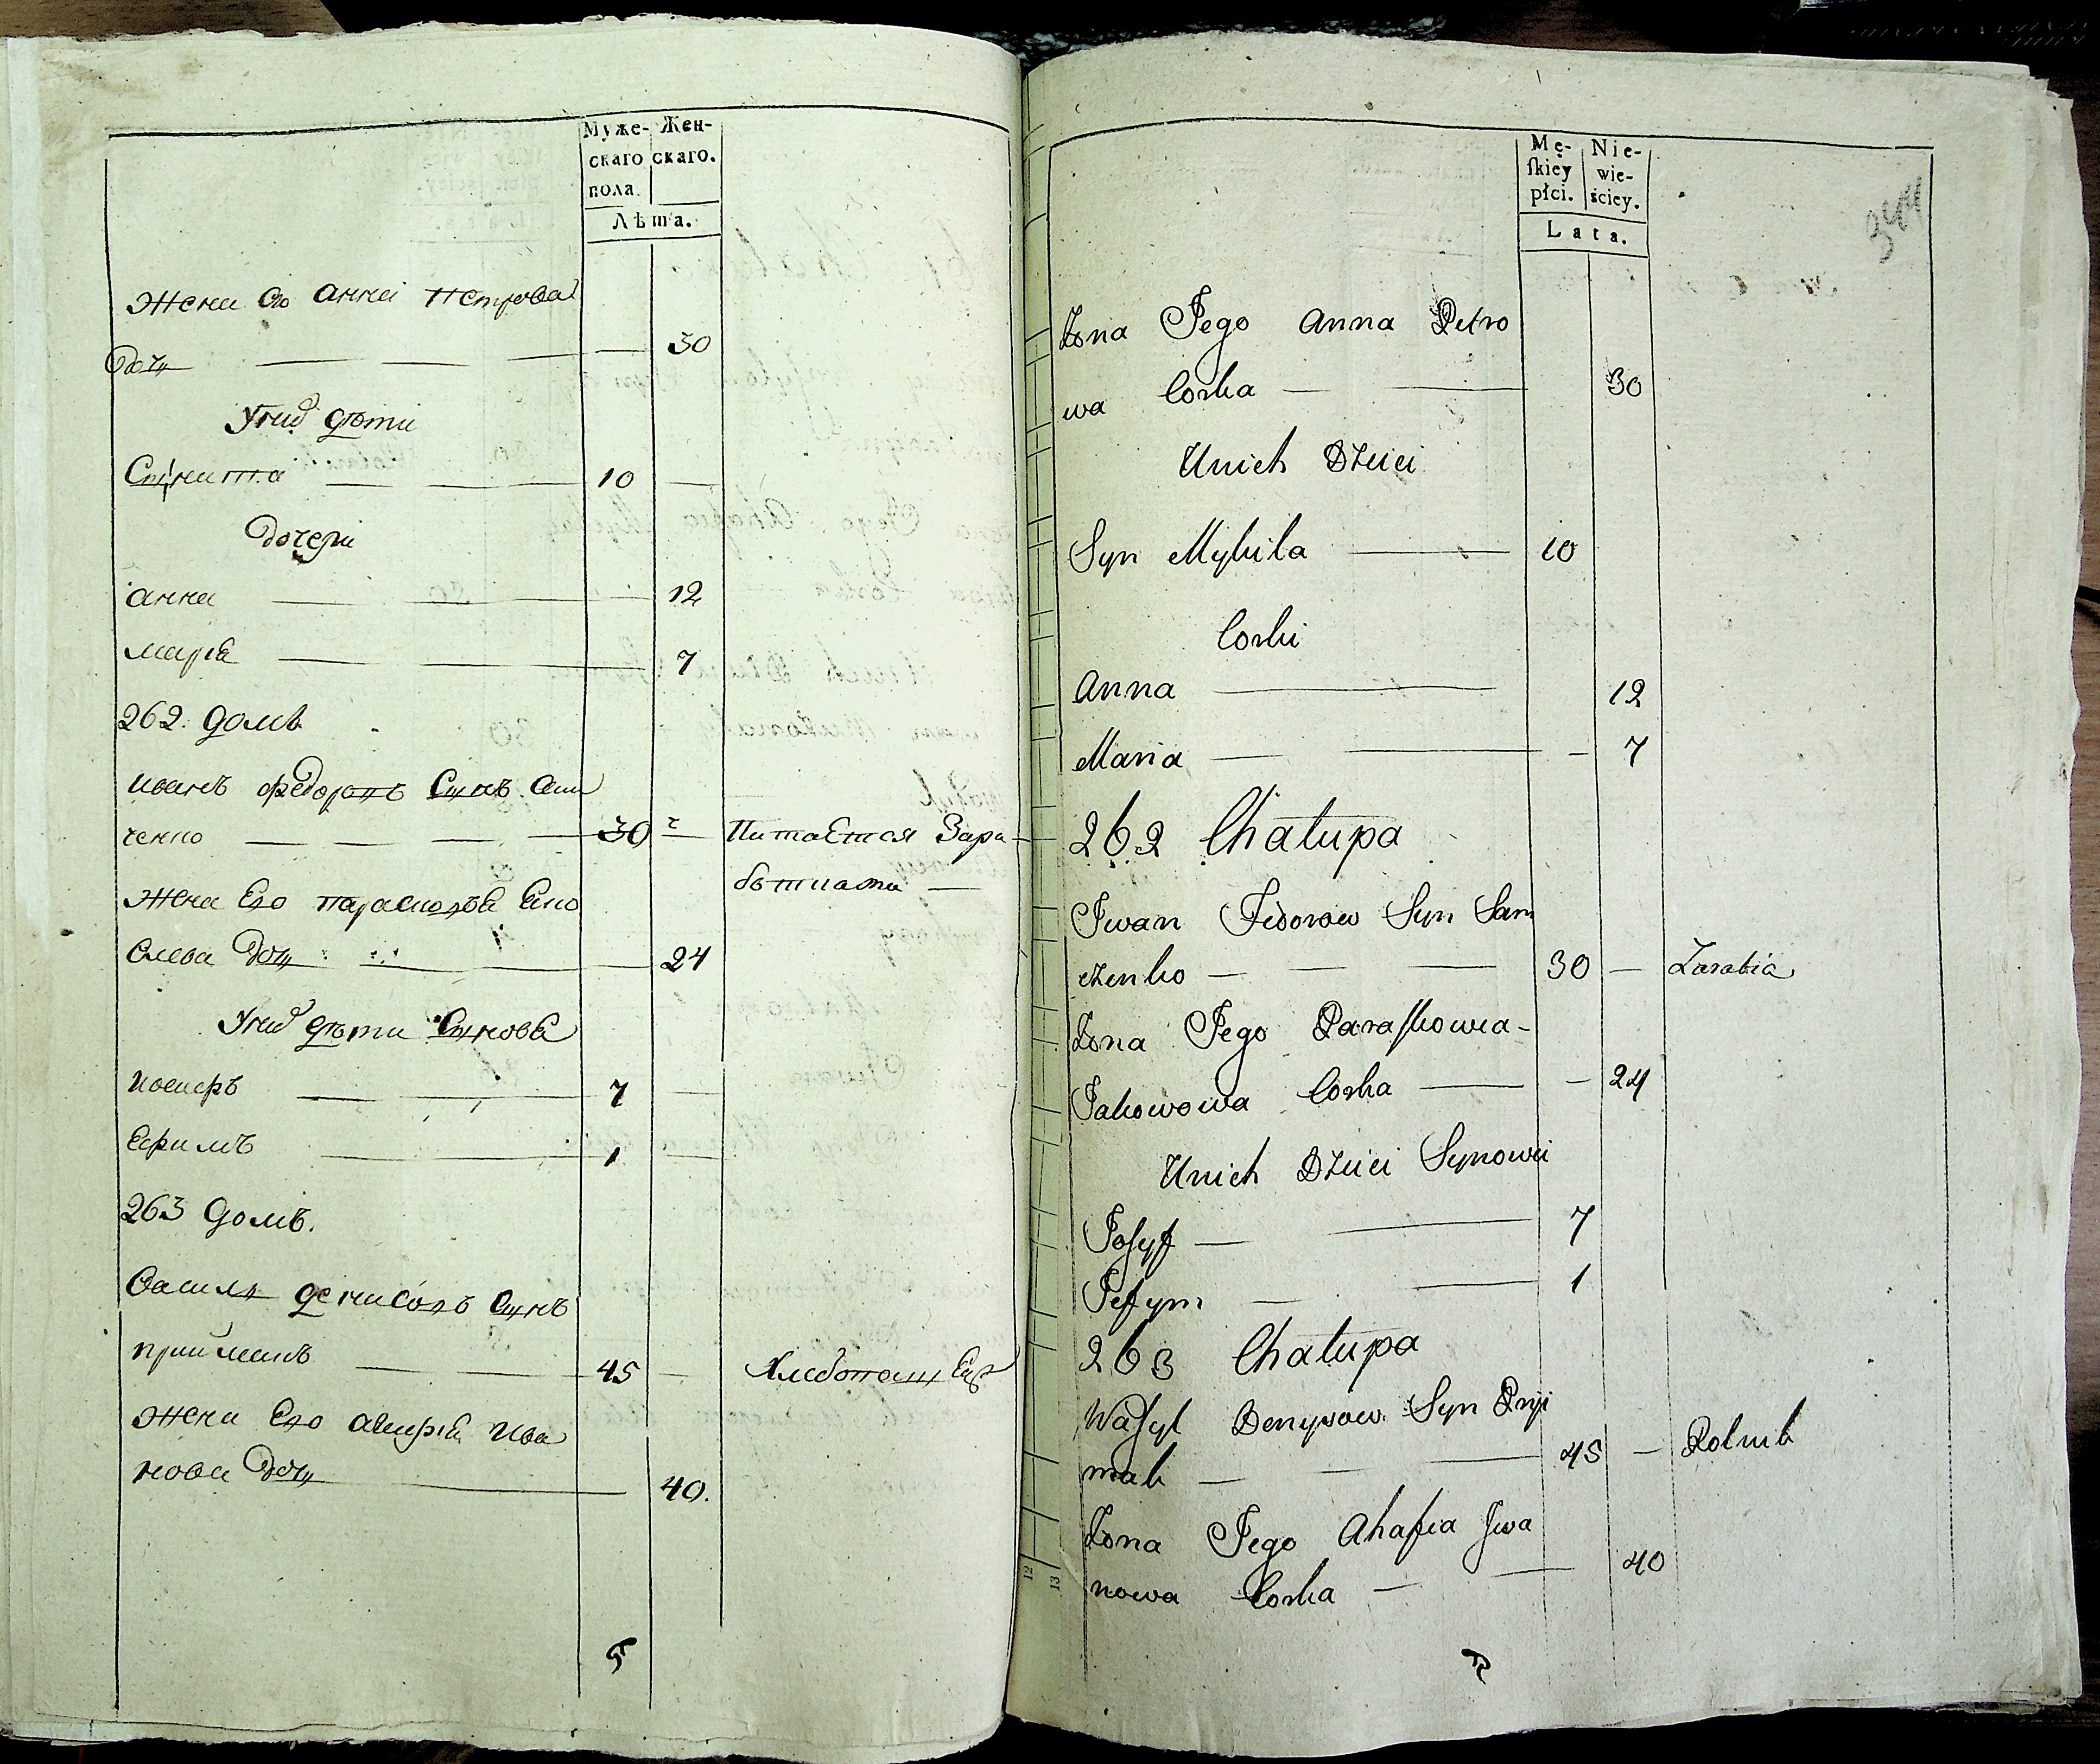 Муже- Жен-
скаго скаго.
пола.
Лѣта.
Жена его анна петрова
дочъ 30
У нид дѣти
10
Дочери
анна 12
мария 7
262. домъ
иванъ федоровъ Сынъ Сам
ченко 30 Питается Зара
ботками
жена Его парасковея Яко
влева дочъ 24
У нид дѣти Сынове
иосифъ 7
Ефимъ 1
263 домъ.
Василь денисовъ Сынъ
прииманъ 45 Хлебопашецъ
жена Его агафия ива
нова дочъ 40.
Mę- Nie-
ſkiey wie-
płci. ściey.
Lata.
344
Zona Jego Anna Petro
wa Corka 30
Unich Dzieci
Syn Mykita 10
Corki
Anna 12
Maria 7
262 Chałupa
Jwan Fedorow Syn Sam
czenko 30 Zarabia
Zona Jego Paraſkowia
Jakowowa Corka 24
Unich Dzieci Synowii
Joſyf 7
Jefym 1
263 Chałupa
Waſyl Denysow Syn Pryi
mak 45 Rolnik
Zona Jego Ahafia Jwa
nowa Corka 40
12 13